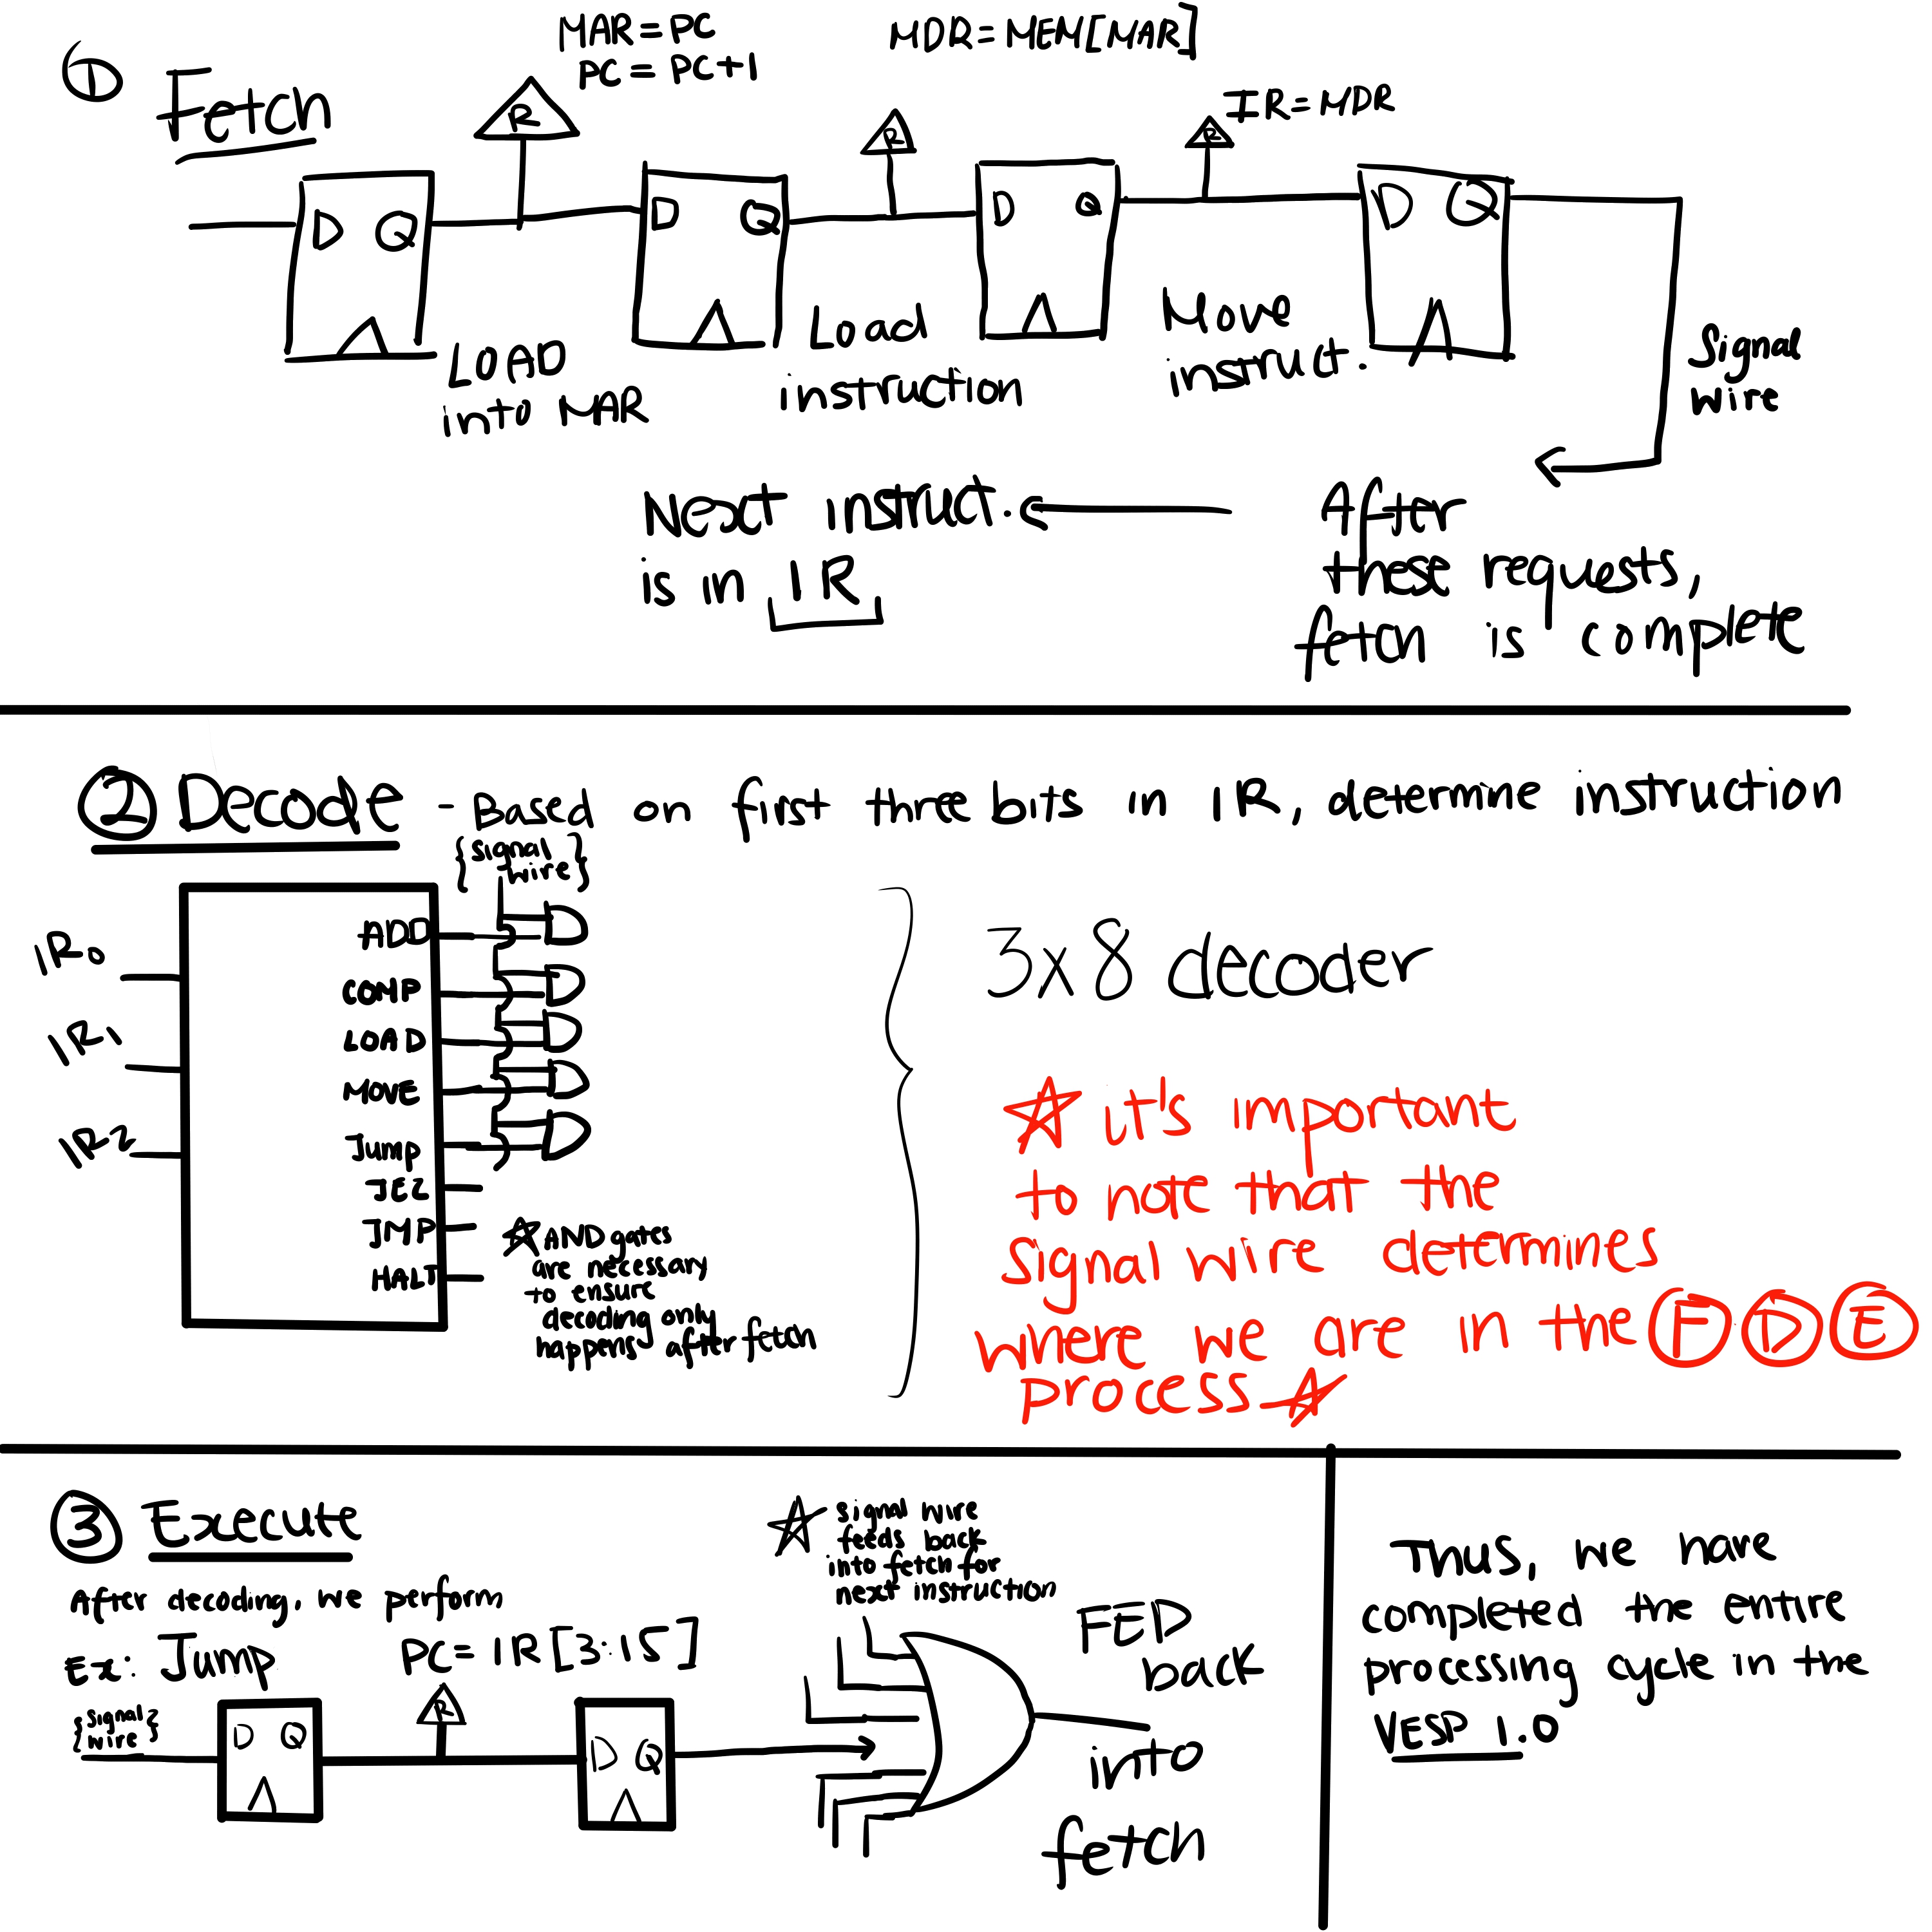 ① Fetch
MAR=PC
PC=PC+1
MDR=MEM[MAR]
IR=MDR
R
R
R
D Q
D Q
D Q
D Q
LOAD
into MAR
Load
instruction
Move
instruct.
Signal
wire
Next instruct.
is in IR
After
these requests,
fetch is complete
② Decode - Based on first three bits in IR, determine instruction
{signal
wire}
IR0
IR1
IR2
ADD
COMP
LOAD
MOVE
Jump
JEZ
JMP
HALT
☆ AND gates
are necessary
to ensure
decoding only
happens after fetch
3x8 decoder
☆ it's important
to note that the
signal wire determines
where we are in the F D E
process ☆
③ Execute
After decoding, we perform
Ex: Jump
PC=IR[3:15]
{signal
wire}
R
D Q
D Q
☆ signal wire
feeds back
into fetch for
next instruction
FED
back
into
fetch
Thus, we have
completed the entire
processing cycle in the
VESP 1.0